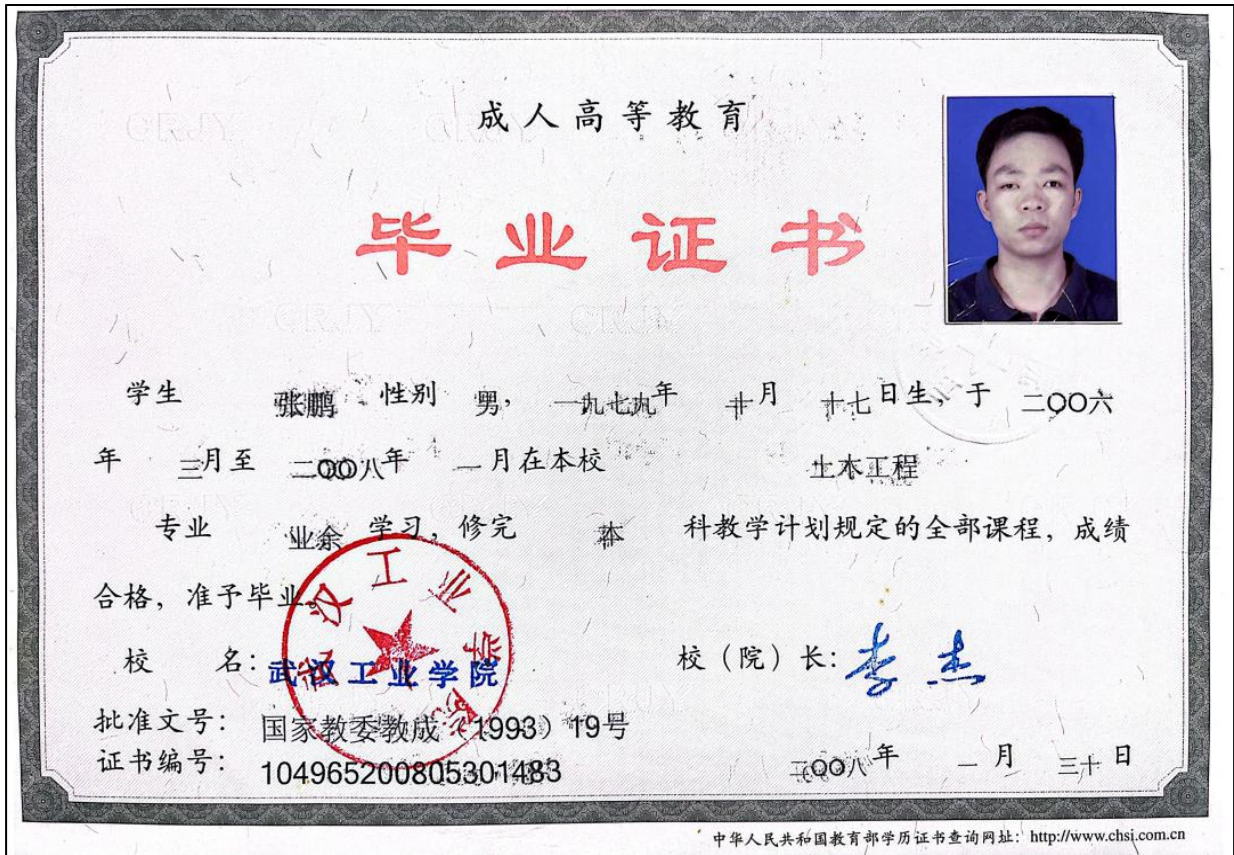 成人高等教育
毕业证书
学生 张鹏 性别 男，一九七九年 十月 十七日生，于 二〇〇六
年 三月至 二〇〇八年 一月在本校 土木工程
专业 业余 学习，修完 本 科教学计划规定的全部课程，成绩
合格，准予毕业。
校 名：武汉工业学院 校（院）长：李杰
批准文号：国家教委教成（1993）19号
证书编号：104965200805301483
二〇〇八年 一月 三十日
武汉工业学院
中华人民共和国教育部学历证书查询网址：http://www.chsi.com.cn
CRJY
CRJY
CRJY